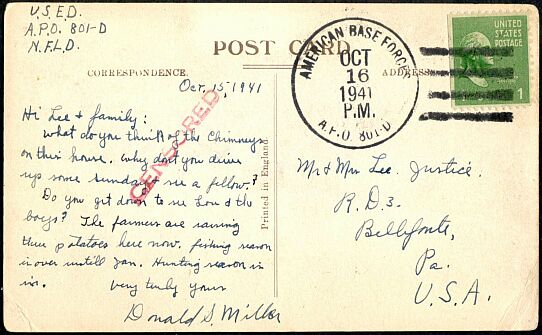 U.S.E.D.
A.P.O. 801-D
N.F.L.D.
POST CARD
CORRESPONDENCE.
ADDRESS
AMERICAN BASE FORCES
OCT
16
1941
P.M.
A.P.O. 801-D
UNITED
STATES
POSTAGE
1
Oct. 15, 1941
CENSORED
Hi Lee & family:
What do you think of the Chimneys
on this house. Why don't you drive
up some Sunday & see a fellow?
Do you get down to see Lou & the
boys? The farmers are raising
their potatoes here now. fishing season
is over until Jan. Hunting season is
in.
Very truly yours
Donald S. Miller
Printed in England
Mr & Mrs Lee Justice.
R.D 3.
Bellefonte,
Pa.
U.S.A.